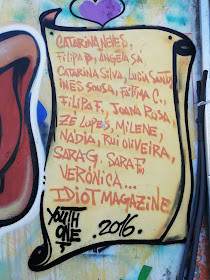 CATARINA NEVES,
FILIPA B, ANGELA SA
CATARINA SILVA, LUCIA SANTOS,
INES SOUSA, FATIMA C.,
FILIPA F., JOANA ROSA,
ZÉ LOPES, MILENE,
NADIA, RUI OLIVEIRA,
SARA G. SARA F.,
VERÓNICA...
IDIOT MAGAZINE
YOUTH
ONE
2016.